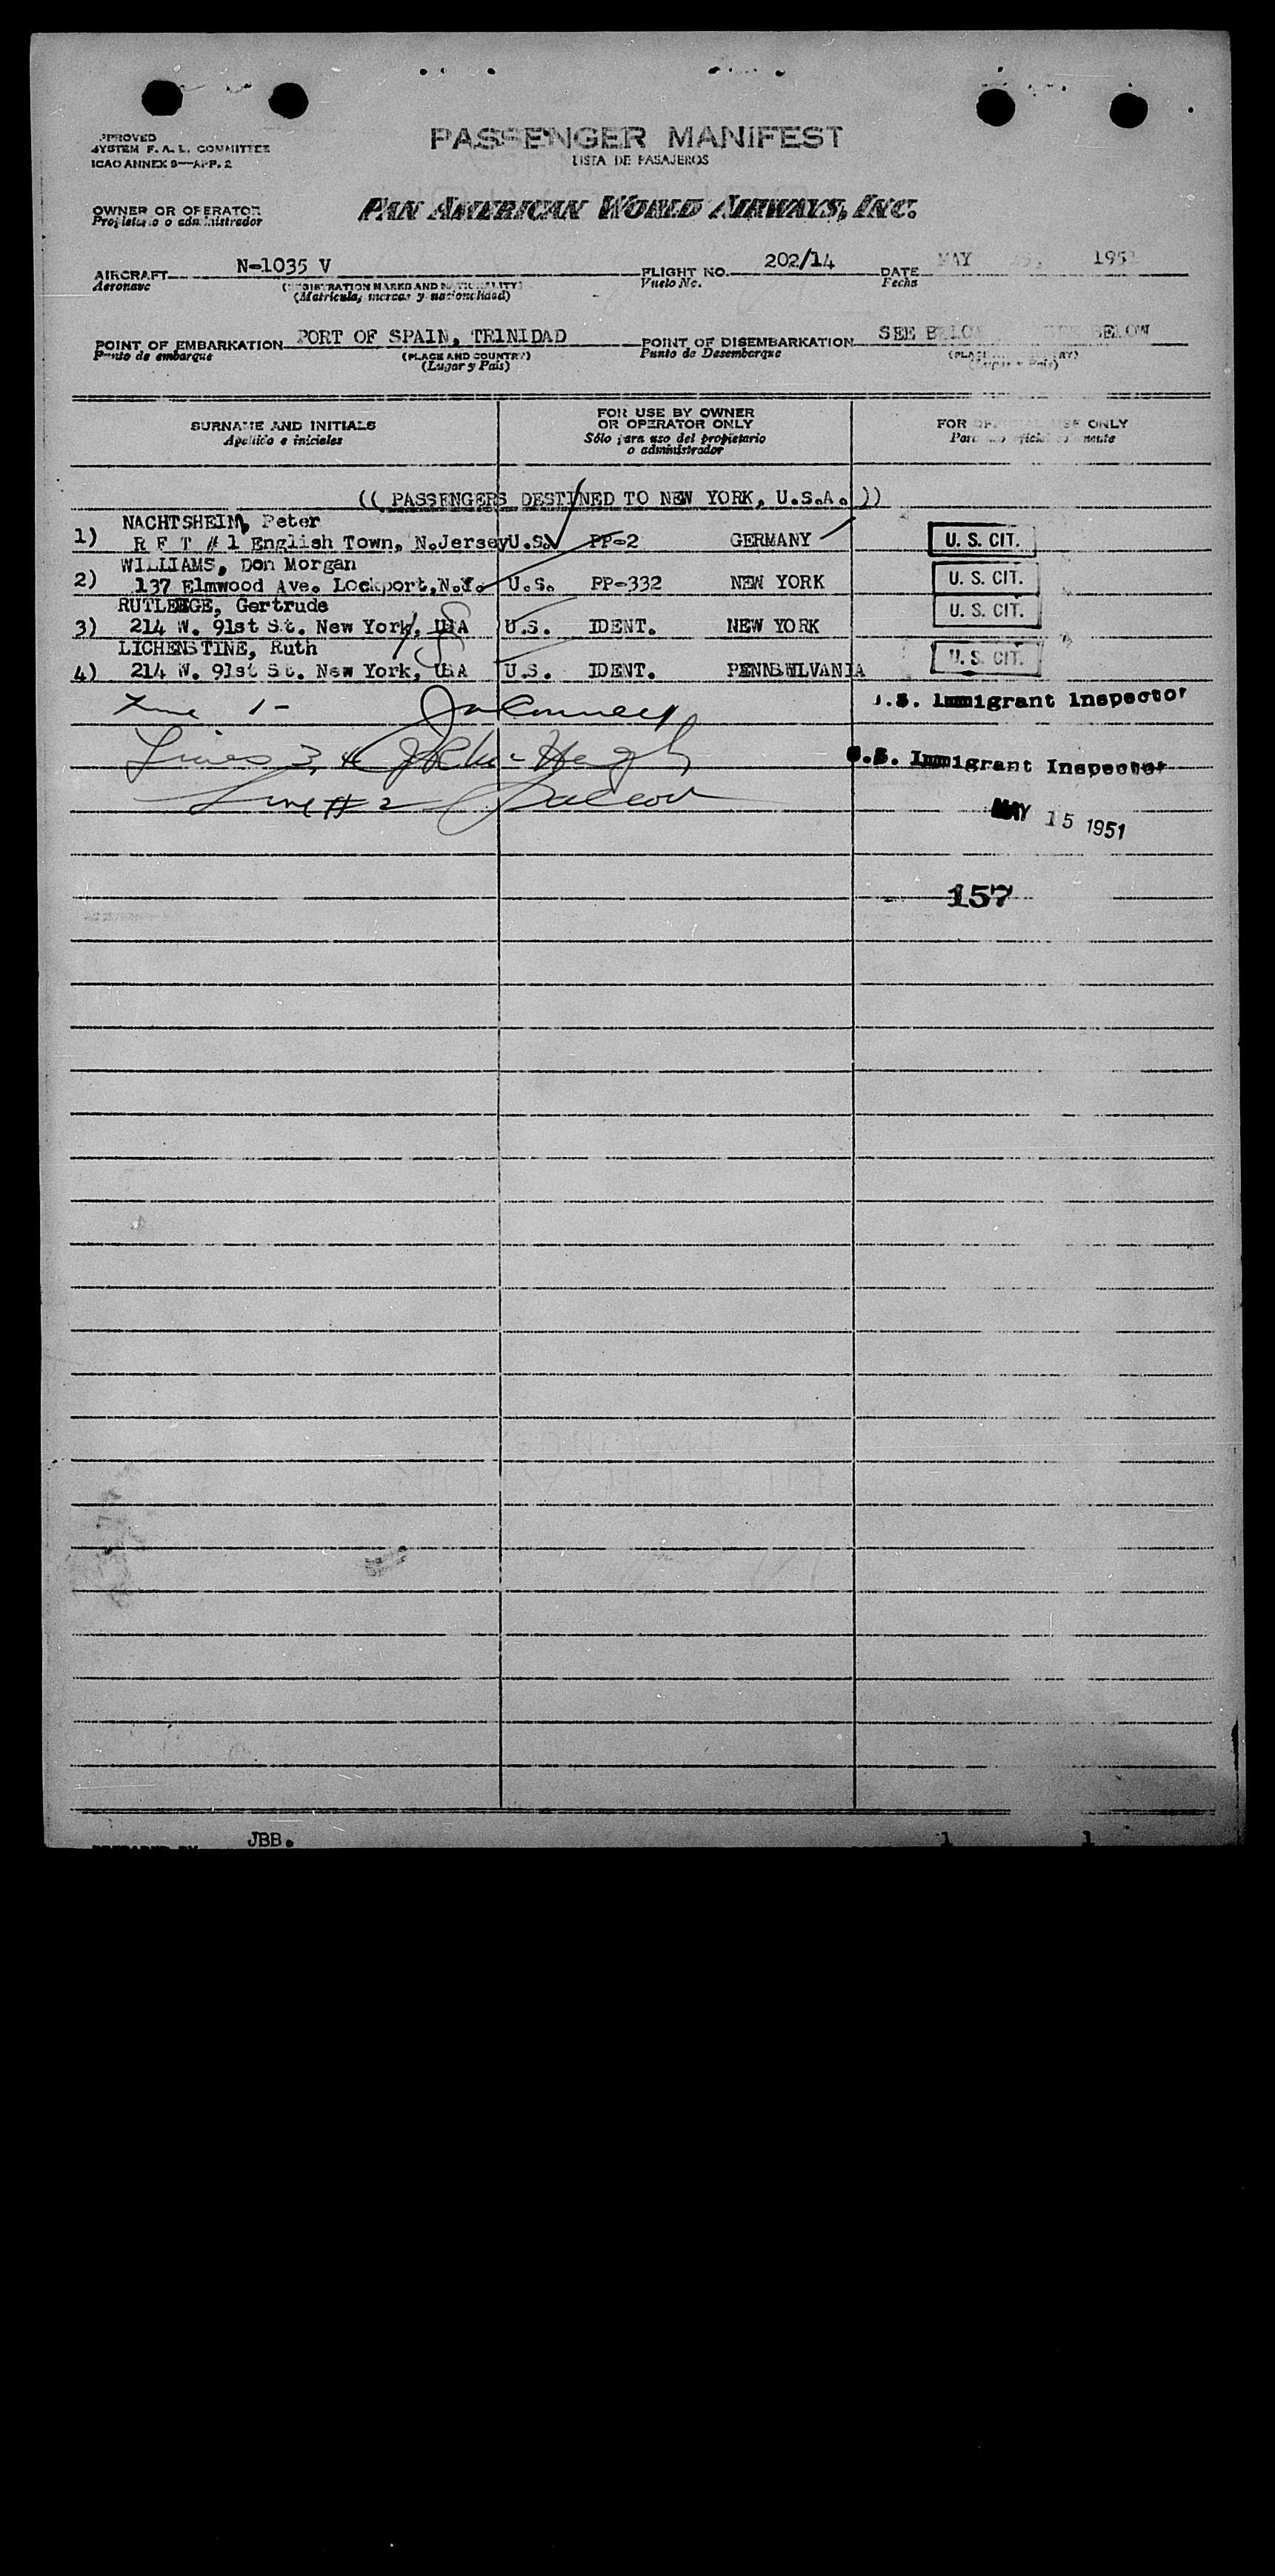 PASSENGER MANIFEST
LISTA DE PASAJEROS
SYSTEM F. A. L. COMMITTEE
ICAO ANNEX 9—APP. 2
OWNER OR OPERATOR
PAN AMERICAN WORLD AIRWAYS, INC.
AIRCRAFT N-1035 V FLIGHT NO. 202/14 DATE MAY
Aeronave Vuelo No. Fecha
(Matrícula, marcas y nacionalidad)
POINT OF EMBARKATION PORT OF SPAIN, TRINIDAD POINT OF DISEMBARKATION SEE BELOW
Punto de embarque (PLACE AND COUNTRY) Punto de Desembarque
(Lugar y País)
SURNAME AND INITIALS FOR USE BY OWNER OR OPERATOR ONLY FOR USE ONLY
Apellido e iniciales Sólo para uso del propietario o administrador
(( PASSENGERS DESTINED TO NEW YORK, U.S.A. ))
NACHTSHEIM, Peter
1) R F T # 1 English Town, N.Jersey U.S. PP-2 GERMANY U. S. CIT.
WILLIAMS, Don Morgan
2) 137 Elmwood Ave. Lockport, N.Y. U.S. PP-332 NEW YORK U. S. CIT.
RUTLEDGE, Gertrude
3) 214 W. 91st St. New York, USA U.S. IDENT. NEW YORK U. S. CIT.
LICHENSTINE, Ruth
4) 214 W. 91st St. New York, USA U.S. IDENT. PENNSWLVANIA U. S. CIT.
U.S. Immigrant Inspector
Lines 3, 4
U.S. Immigrant Inspector
Line # 2
MAY 15 1951
157
JBB. 1 1